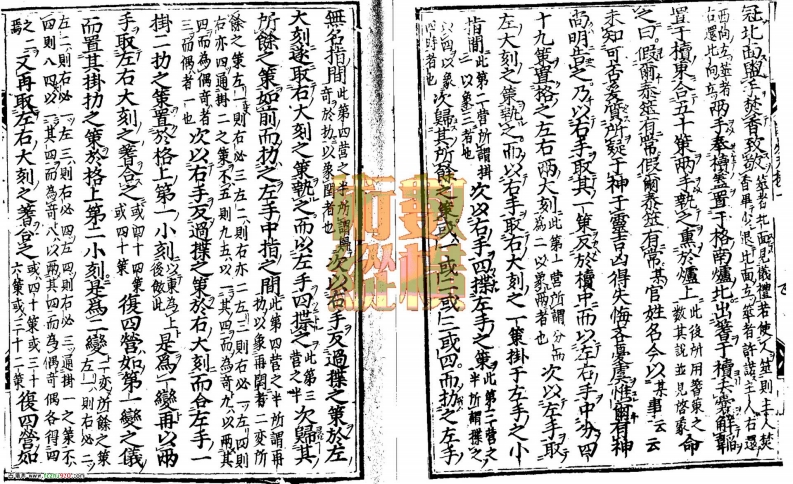 冠北面盥手焚香致敬筮者北面見儀禮若使人筮則主人焚香畢少退北面立筮者
西向立筮者右還北向立兩手奉櫝蓋置于格南爐北出蓍于櫝去囊解韜
置于櫝東合五十策兩手執之熏於爐上此後所用蓍策之數其說並見啓蒙命
之曰假爾泰筮有常假爾泰筮有常某官姓名今以某事云云
未知可否爰質所疑于神于靈吉凶得失悔吝憂虞惟爾有神
尚明告之乃以右手取其一策反於櫝中而以左右手中分四
十九策置格之左右兩大刻此第一營所謂分而為二以象兩者也次以左手取
左大刻之策執之而以右手取右大刻之一策掛于左手之小
指間此第二營所謂掛一以象三者也次以右手四揲左手之策此第三營之半所謂揲之
以四以象四時者也次歸其所餘之策或一或二或三或四而扐之左手
無名指間此第四營之半所謂歸奇於扐以象閏者也次以右手反過揲之策於左
大刻遂取右大刻之策執之而以左手四揲之此第三營之半次歸其
所餘之策如前而扐之左手中指之間此第四營之半所謂再扐以象再閏者也一變所
餘之策左一則右必三左二則右亦二左三則右必一左四則右亦四通掛一之策不五則九五以一其四而為奇九以兩其
四而為偶奇者三而偶者一也次以右手反過揲之策於右大刻而合左手一
掛二扐之策置於格上第一小刻以東為上後倣此是為一變再以兩
手取左右大刻之蓍合之或四十四策或四十策復四營如第一變之儀
而置其掛扐之策於格上第二小刻是為二變二變所餘之策左一則右必二
左二則右必一左三則右必四左四則右必三通掛一之策不四則八四以一其四而為奇八以兩其四而為偶奇偶各得四之二
焉又再取左右大刻之蓍合之或四十策或三十六策或三十二策復四營如
數術
縱橫